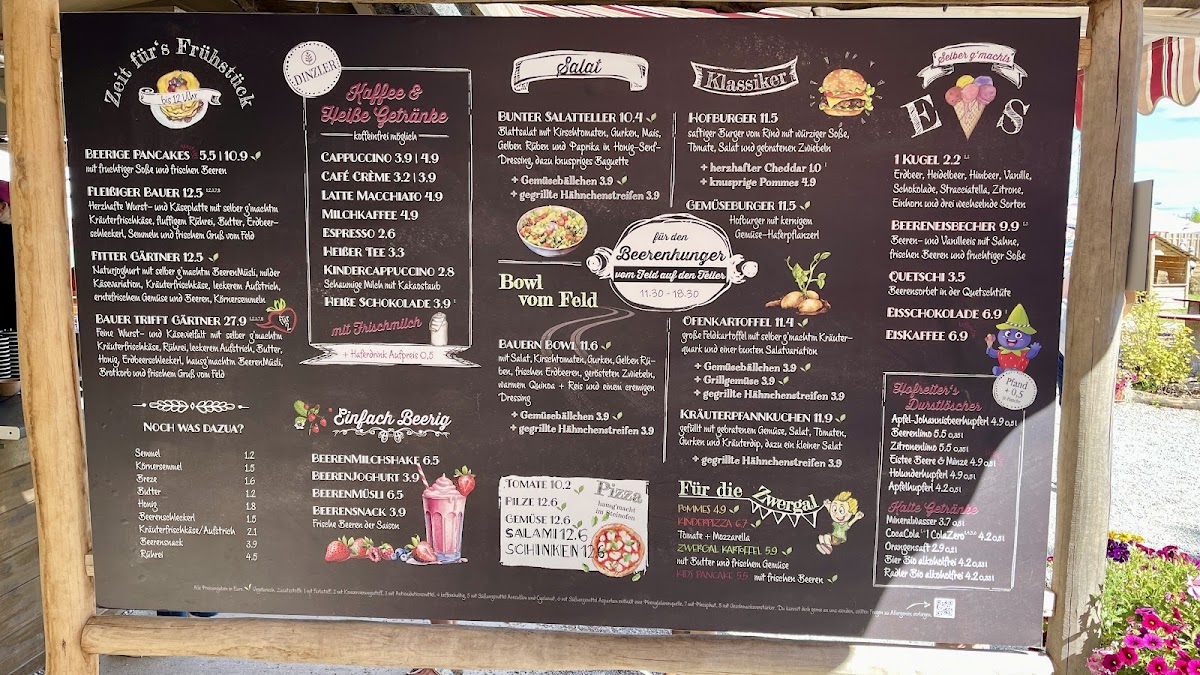 Zeit für's Frühstück
bis 12 Uhr
BEERIGE PANCAKES 5.5 | 10.9
mit fruchtiger Soße und frischen Beeren
FLEIßIGER BAUER 12.5
Herzhafte Wurst- und Käseplatte mit selber g'machtm
Kräuterfrischkäse, fluffigem Rührei, Butter, Erdbeer-
schleckerl, Semmeln und frischem Gruß vom Feld
FITTER GÄRTNER 12.5
Naturjoghurt mit selber g'machtm BeerenMüsli, milder
Käsevariation, Kräuterfrischkäse, leckerem Aufstrich,
erntefrischem Gemüse und Beeren, Körnersemmeln
BAUER TRIFFT GÄRTNER 27.9
Feine Wurst- und Käsevielfalt mit selber g'machtm
Kräuterfrischkäse, Rührei, leckerem Aufstrich, Butter,
Honig, Erdbeerschleckerl, hausg'machtm BeerenMüsli,
Brotkorb und frischem Gruß vom Feld
NOCH WAS DAZUA?
Semmel 1.2
Körnersemmel 1.5
Breze 1.6
Butter 1.2
Honig 1.8
Beerenschleckerl 1.5
Kräuterfrischkäse/Aufstrich 2.1
Beerensnack 3.9
Rührei 4.5
DINZLER
Kaffee &
Heiße Getränke
koffeinfrei möglich
CAPPUCCINO 3.9 | 4.9
CAFÉ CRÈME 3.2 | 3.9
LATTE MACCHIATO 4.9
MILCHKAFFEE 4.9
ESPRESSO 2.6
HEIßER TEE 3.3
KINDERCAPPUCCINO 2.8
Schaumige Milch mit Kakaostaub
HEIßE SCHOKOLADE 3.9
mit Frischmilch
+ Haferdrink Aufpreis 0,5
Einfach Beerig
BEERENMILCHSHAKE 6.5
BEERENJOGHURT 3.9
BEERENMÜSLI 6.5
BEERENSNACK 3.9
Frische Beeren der Saison
Salat
BUNTER SALATTELLER 10.4
Blattsalat mit Kirschtomaten, Gurken, Mais,
Gelben Rüben und Paprika in Honig-Senf-
Dressing, dazu knuspriges Baguette
+ Gemüsebällchen 3.9
+ gegrillte Hähnchenstreifen 3.9
Bowl
vom Feld
BAUERN BOWL 11.6
mit Salat, Kirschtomaten, Gurken, Gelben Rü-
ben, frischen Erdbeeren, gerösteten Zwiebeln,
warmen Quinoa + Reis und einem cremigen
Dressing
+ Gemüsebällchen 3.9
+ gegrillte Hähnchenstreifen 3.9
TOMATE 10.2
PILZE 12.6
GEMÜSE 12.6
SALAMI 12.6
SCHINKEN 12.6
Pizza
hausg'macht
im Steinofen
Klassiker
HOFBURGER 11.5
saftiger Burger vom Rind mit würziger Soße,
Tomate, Salat und gebratenen Zwiebeln
+ herzhafter Cheddar 1.0
+ knusprige Pommes 4.9
GEMÜSEBURGER 11.5
Hofburger mit kernigem
Gemüse-Haferpflanzerl
für den
Beerenhunger
vom Feld auf den Teller
11.30 - 18.30
OFENKARTOFFEL 11.4
große Feldkartoffel mit selber g'machtm Kräuter-
quark und einer bunten Salatvariation
+ Gemüsebällchen 3.9
+ Grillgemüse 3.9
+ gegrillte Hähnchenstreifen 3.9
KRÄUTERPFANNKUCHEN 11.9
gefüllt mit gebratenem Gemüse, Salat, Tomaten,
Gurken und Kräuterdip, dazu ein kleiner Salat
+ gegrillte Hähnchenstreifen 3.9
Für die Zwergal
POMMES 4.9
KINDERPIZZA 6.7
Tomate + Mozzarella
ZWERGAL KARTOFFEL 5.9
mit Butter und frischem Gemüse
KIDS PANCAKE 5.5 mit frischen Beeren
Selber g'machts
EIS
1 KUGEL 2.2
Erdbeer, Heidelbeer, Himbeer, Vanille,
Schokolade, Stracciatella, Zitrone,
Einhorn und drei wechselnde Sorten
BEERENEISBECHER 9.9
Beeren- und Vanilleeis mit Sahne,
frischen Beeren und fruchtiger Soße
QUETSCHI 3.5
Beerensorbet in der Quetschtüte
EISSCHOKOLADE 6.9
EISKAFFEE 6.9
Pfand
+ 0,5
Hofreiter's
Durstlöscher
Apfel-Johannisbeerhupferl 4.9 0,5l
Beerenlimo 5.5 0,35l
Zitronenlimo 5.5 0,35l
Eistee Beere & Minze 4.9 0,5l
Holunderhupferl 4.9 0,5l
Apfelhupferl 4.2 0,5l
Kalte Getränke
Mineralwasser 3.7 0,5l
CocaCola | ColaZero 4.2 0,5l
Orangensaft 2.9 0,2l
Bier Bio alkoholfrei 4.2 0,33l
Radler Bio alkoholfrei 4.2 0,33l